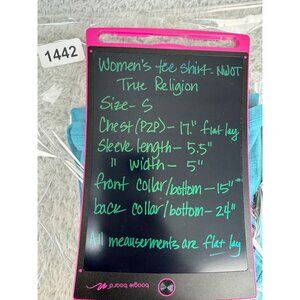 1442
Women's tee shirt- NWOT
True Religion
Size- S
Chest (P2P) - 17." flat lay
Sleeve length - 5.5"
" width - 5"
front collar/bottom - 15"
back collar/bottom - 24"
All meauserments are flat lay
boogie board